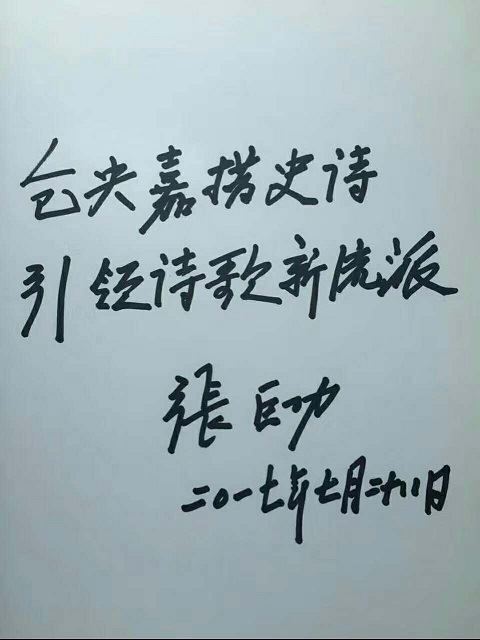 仓央嘉措史诗
引领诗歌新流派
張巨功
二〇一七年七月二十八日